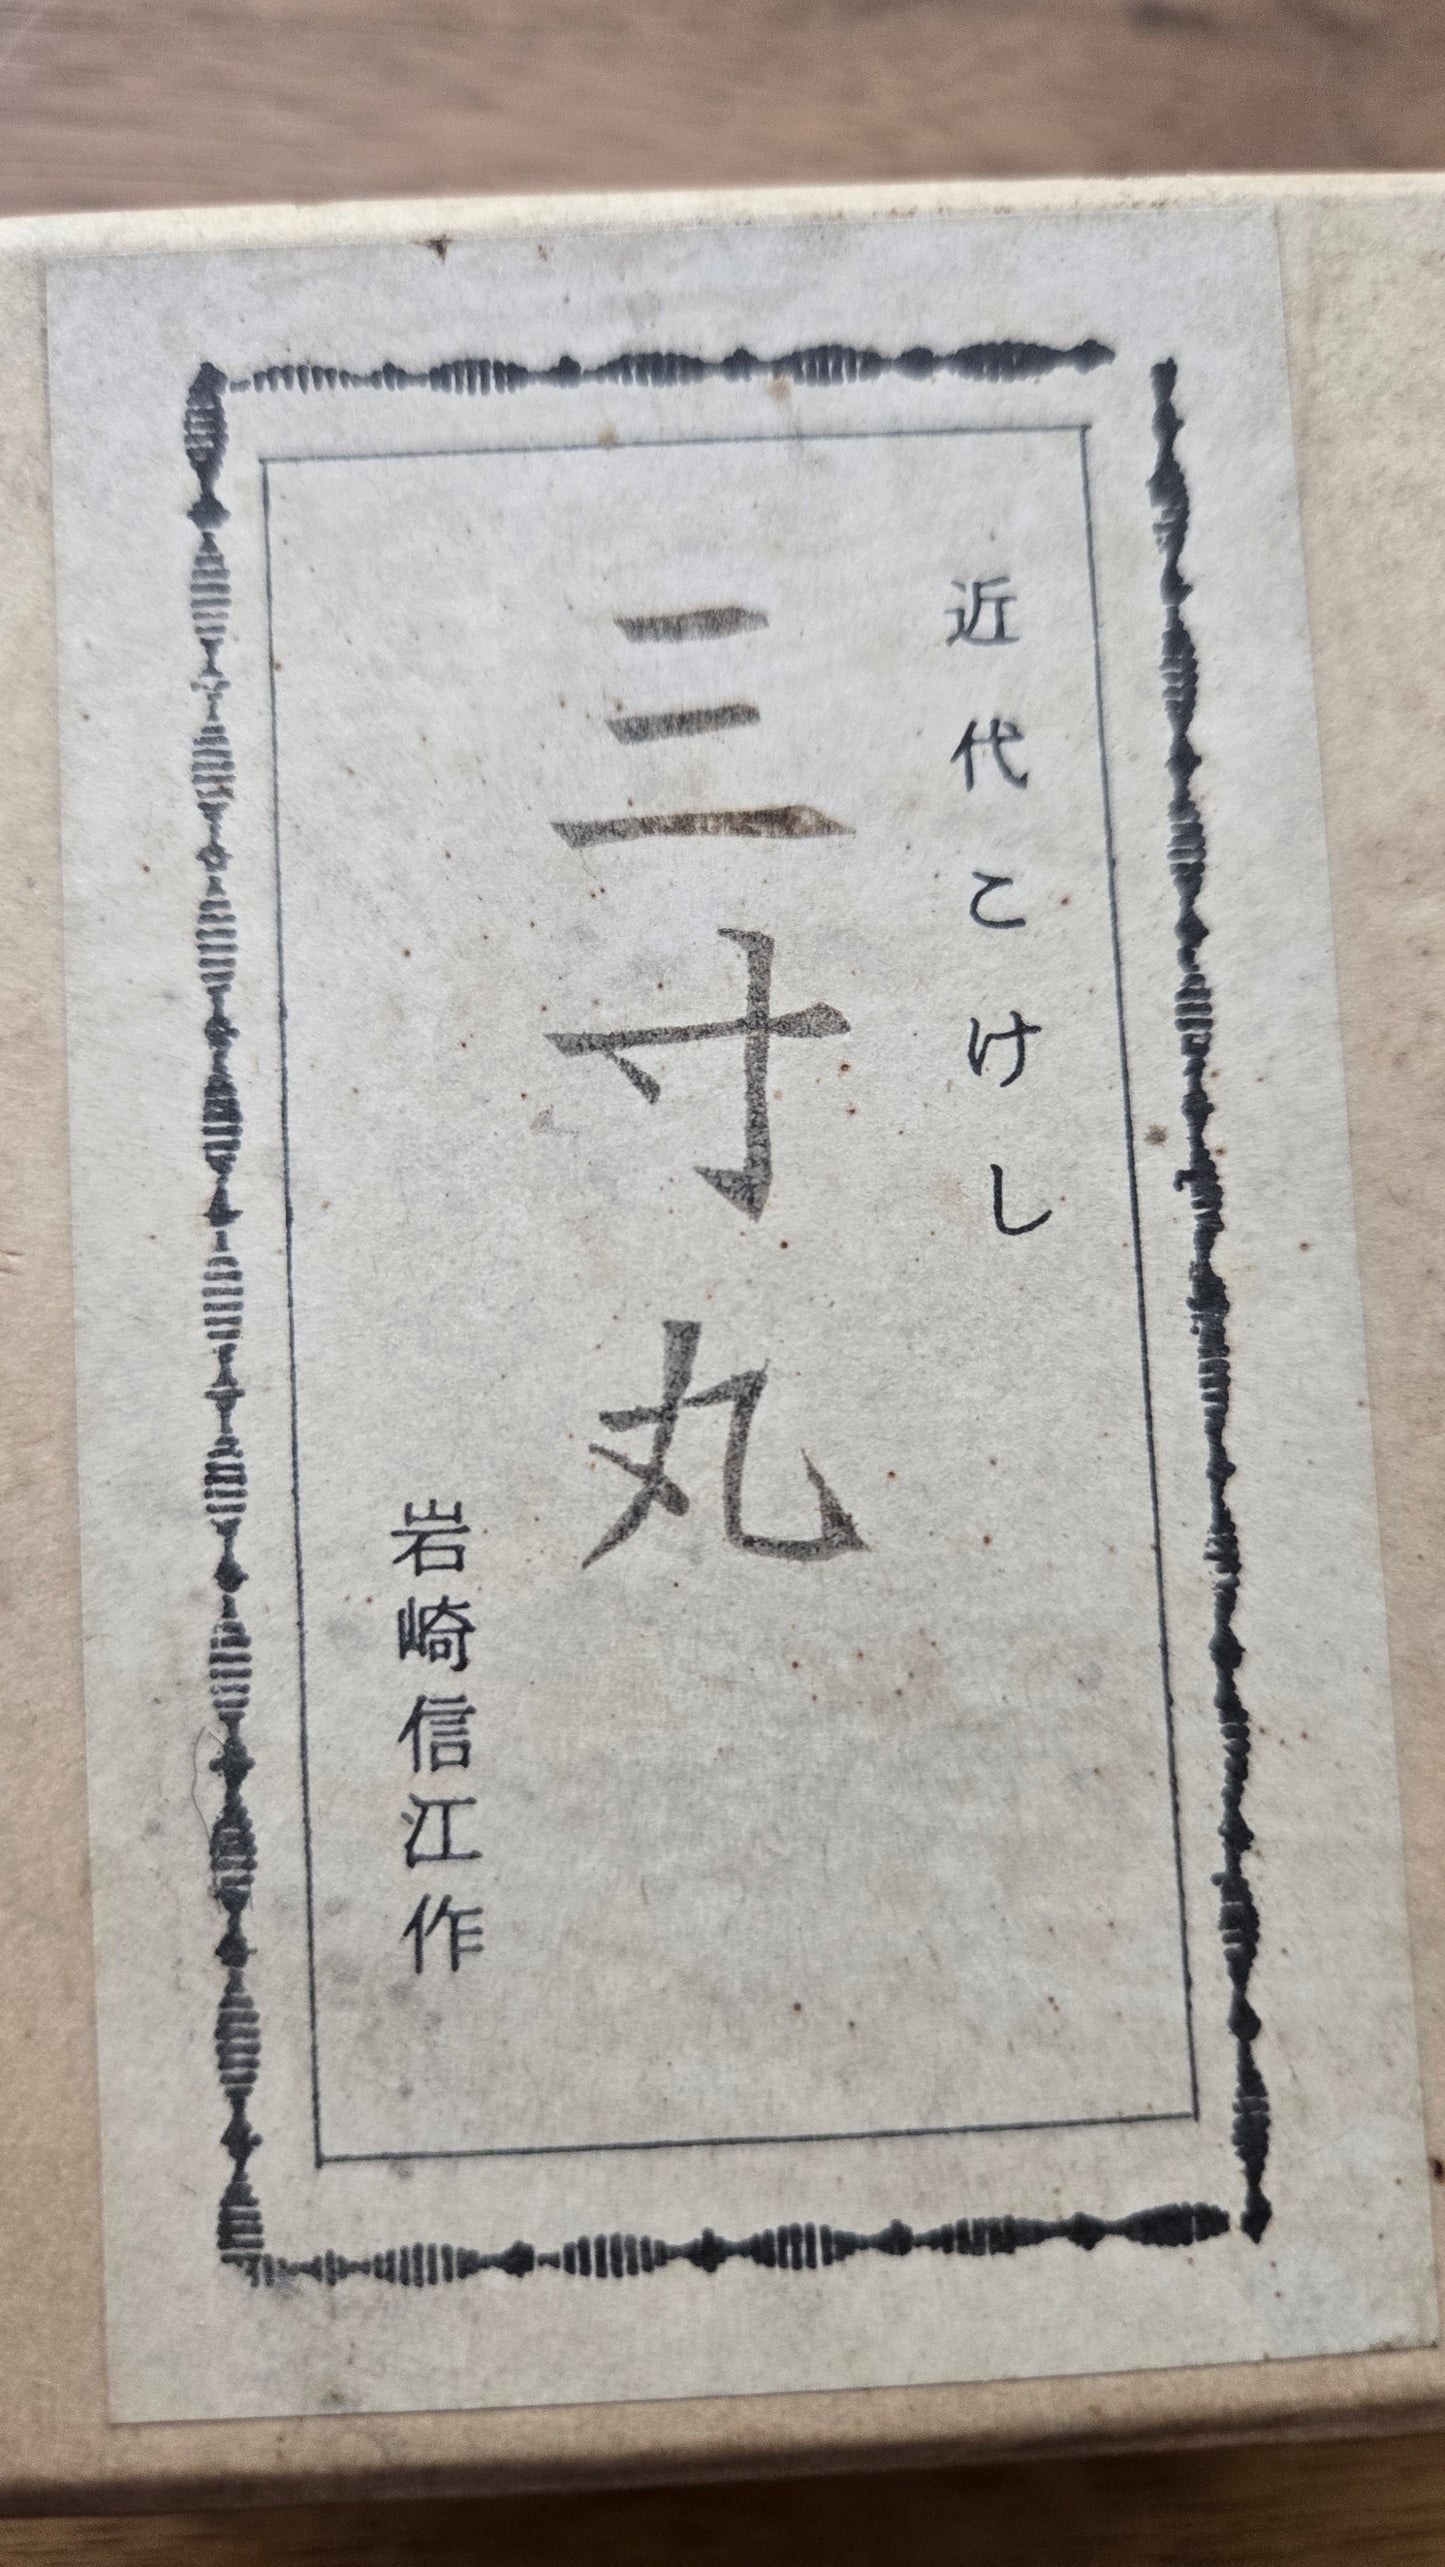 近代こけし
三寸丸
岩崎信江作